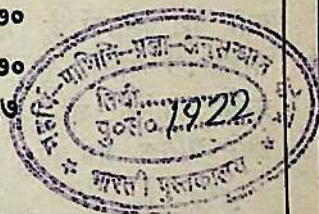 १०
१०
७
महर्षि-पाणिनि-प्रज्ञा-अनुसन्धान
तिथी..........
पु०सं०.1922
भारती पुस्तकालय